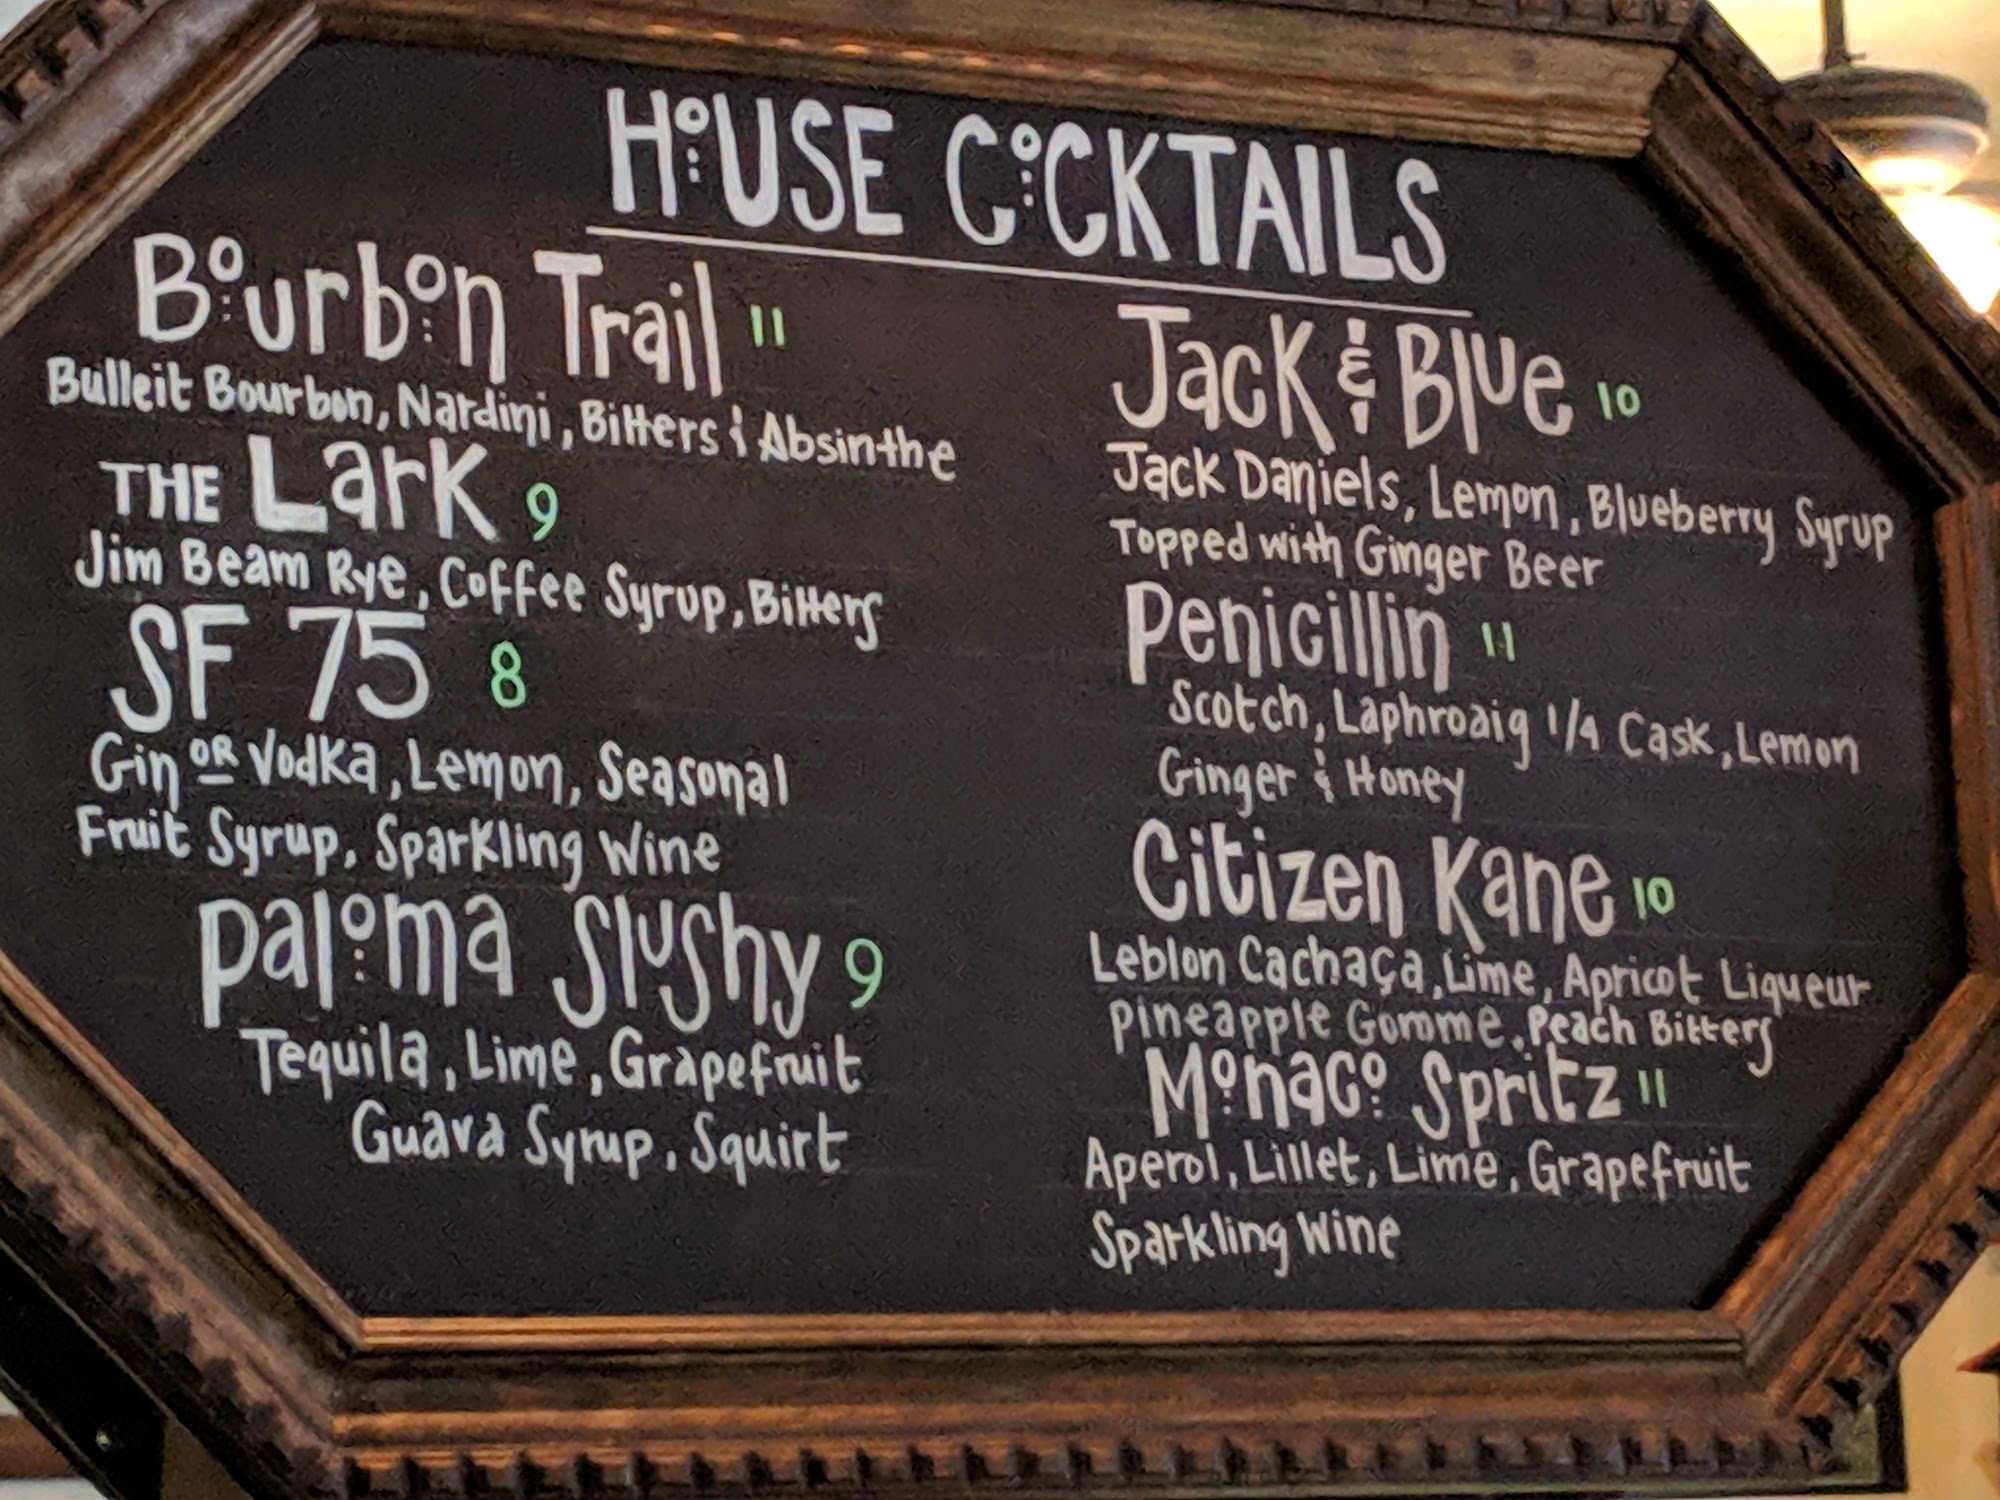 HOUSE COCKTAILS
Bourbon Trail 11
Bulleit Bourbon, Nardini, Bitters & Absinthe
THE Lark 9
Jim Beam Rye, Coffee Syrup, Bitters
SF 75 8
Gin OR Vodka, Lemon, Seasonal
Fruit Syrup, Sparkling Wine
Paloma Slushy 9
Tequila, Lime, Grapefruit
Guava Syrup, Squirt
Jack & Blue 10
Jack Daniels, Lemon, Blueberry Syrup
Topped with Ginger Beer
Penicillin 11
Scotch, Laphroaig 1/4 Cask, Lemon
Ginger & Honey
Citizen Kane 10
Leblon Cachaça, Lime, Apricot Liqueur
Pineapple Gomme, Peach Bitters
Monaco Spritz 11
Aperol, Lillet, Lime, Grapefruit
Sparkling Wine